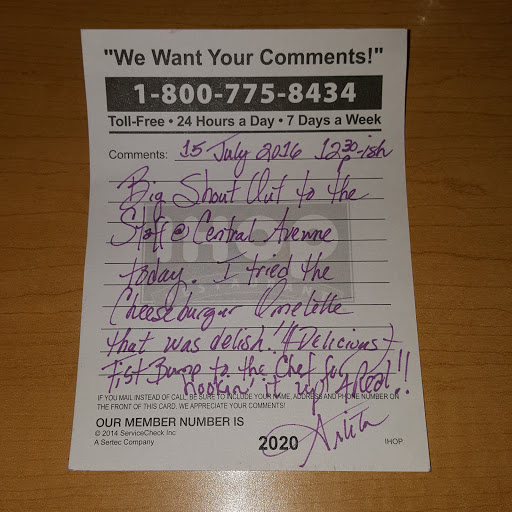 "We Want Your Comments!"
1-800-775-8434
Toll-Free • 24 Hours a Day • 7 Days a Week
Comments: 15 July 2016 12:30 p-ish
Big Shout Out to the
Staff @ Central Avenue
today. I tried the
Cheeseburger Omelette
that was delish! (Delicious)
Fist Bump to the Chef for
hookin' it up! 4Real!!
IF YOU MAIL INSTEAD OF CALL, BE SURE TO INCLUDE YOUR NAME, ADDRESS AND PHONE NUMBER ON
THE FRONT OF THIS CARD. WE APPRECIATE YOUR COMMENTS!
OUR MEMBER NUMBER IS
© 2014 ServiceCheck Inc
A Sertec Company
2020
IHOP